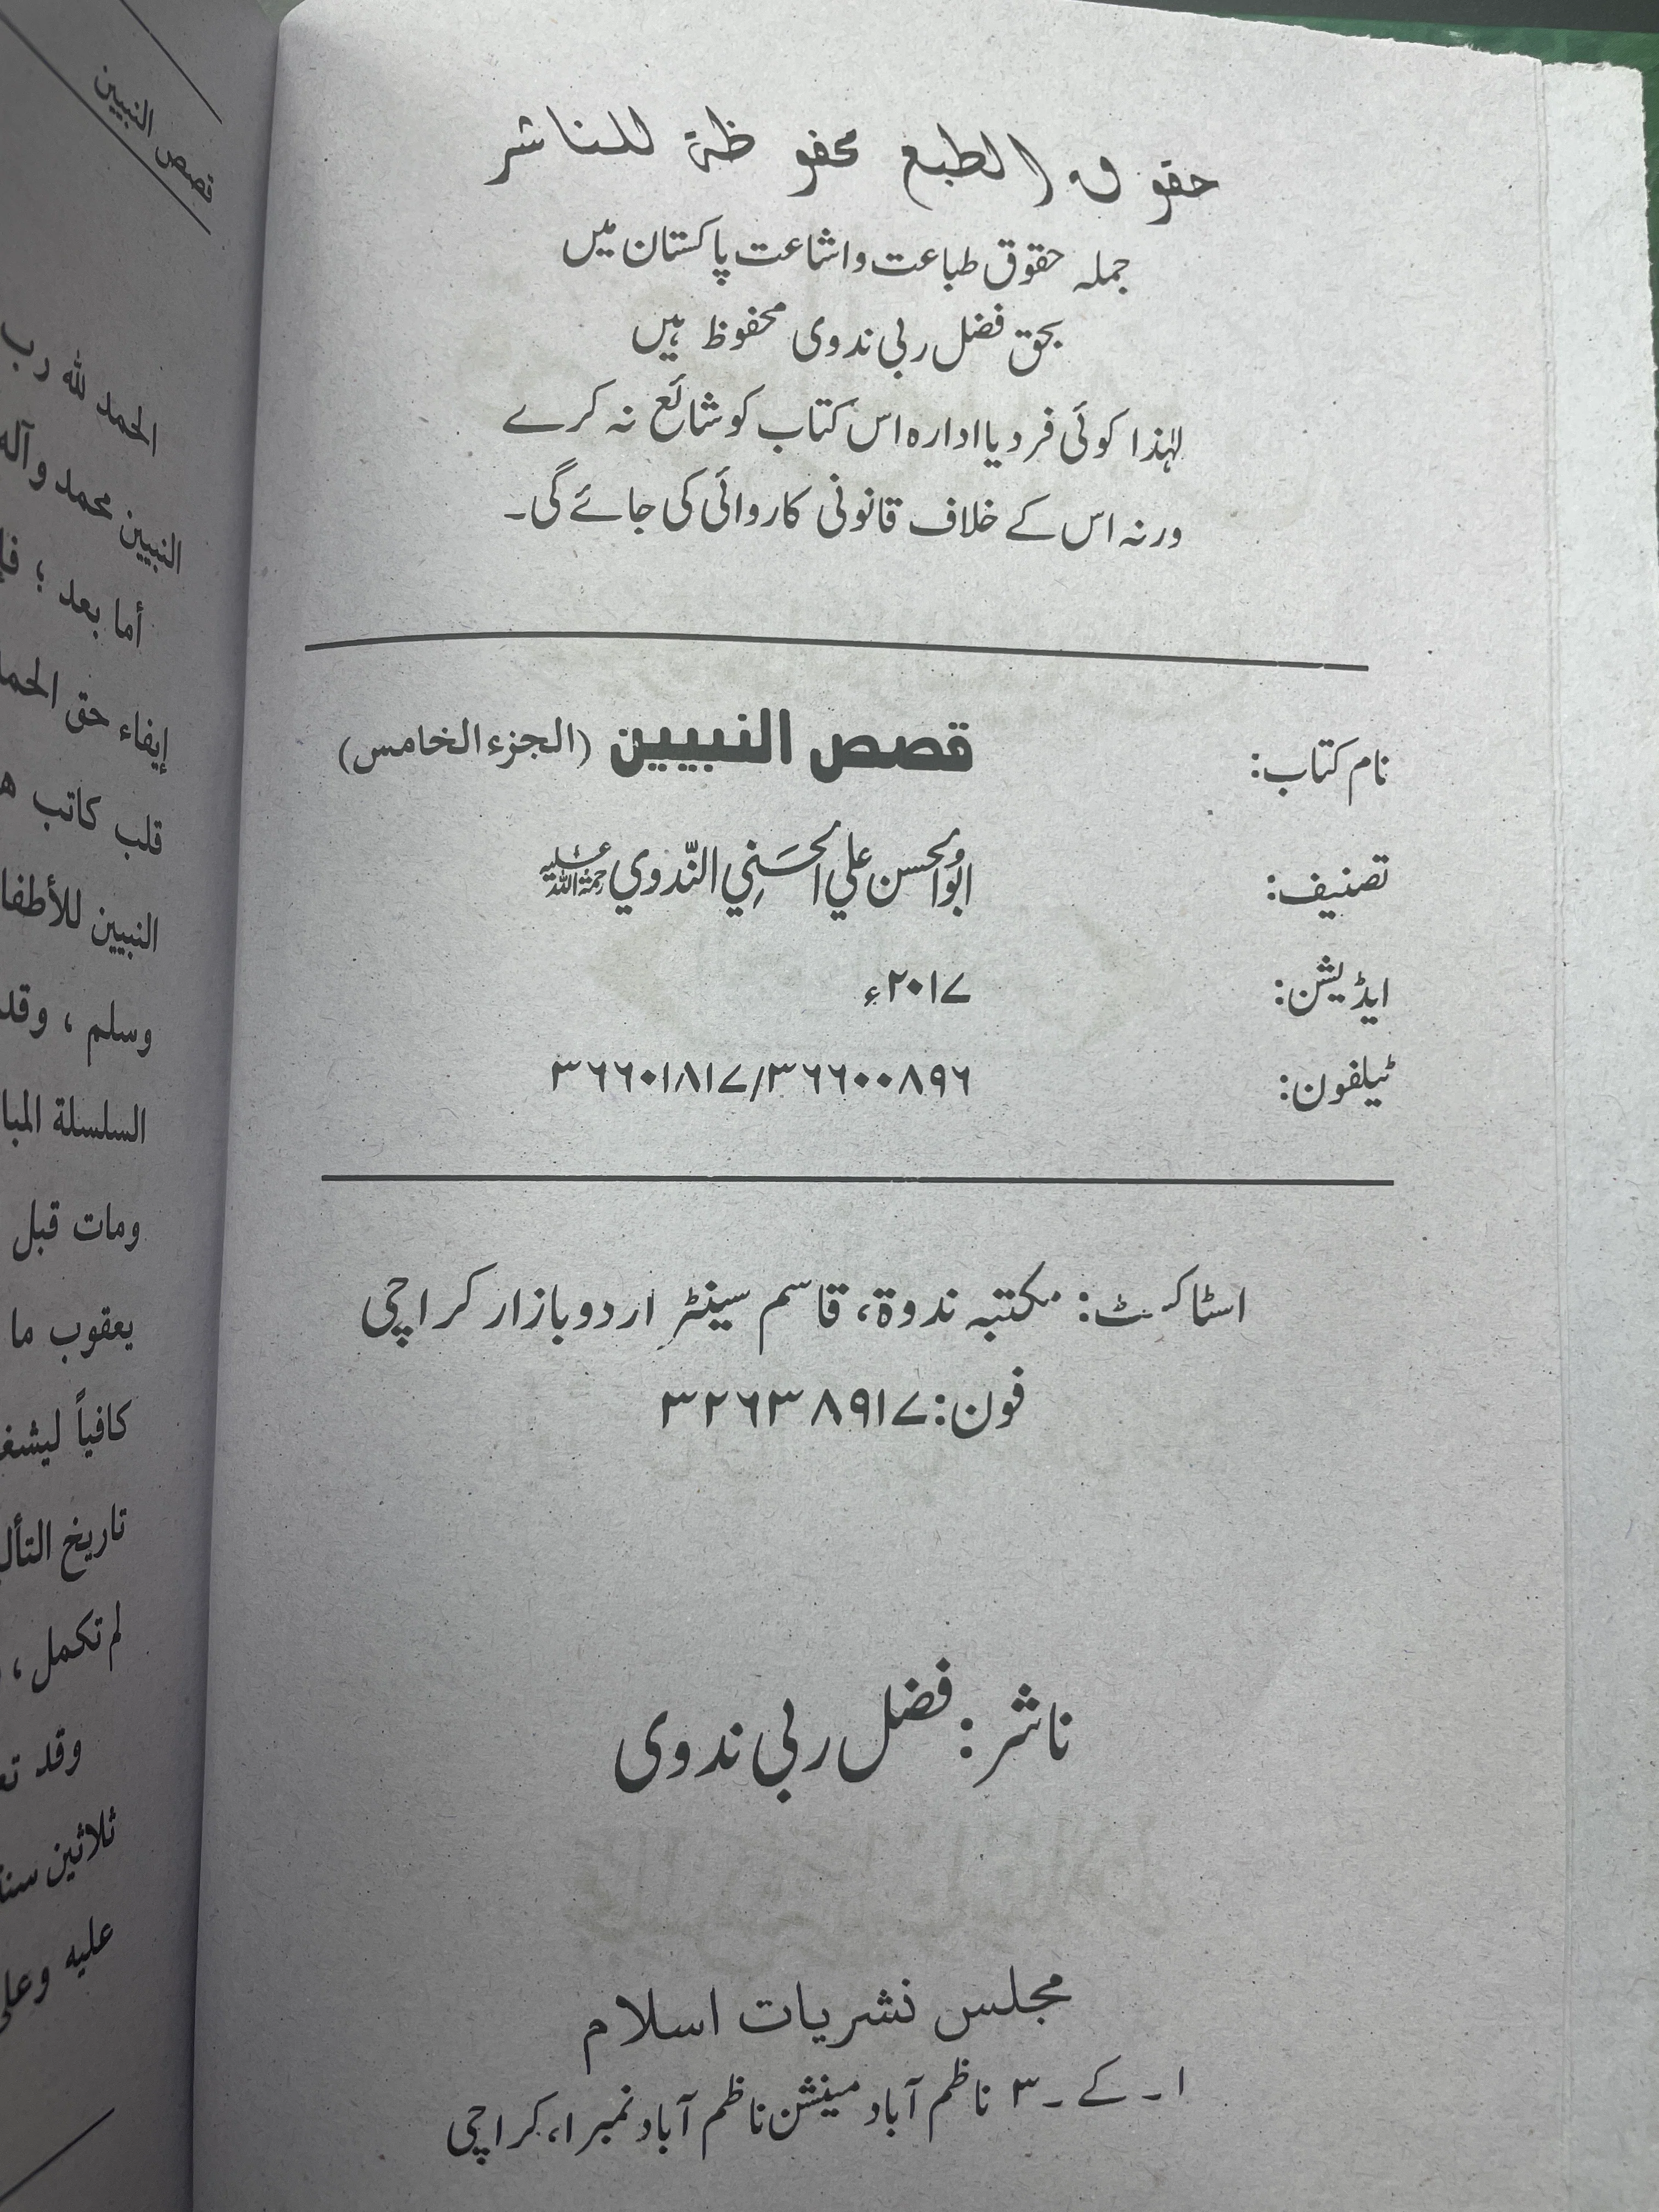 حقوق الطبع محفوظة للناشر
جملہ حقوق طباعت واشاعت پاکستان میں
بحق فضل ربی ندوی محفوظ ہیں
لہٰذا کوئی فرد یا ادارہ اس کتاب کو شائع نہ کرے
ورنہ اس کے خلاف قانونی کاروائی کی جائے گی۔
نام کتاب: قصص النبيين (الجزء الخامس)
تصنیف: ابوالحسن علي الحَسَنِي النّدوي رحمۃ اللہ علیہ
ایڈیشن: ۲۰۱۷ء
ٹیلفون: ۳۶۶۰۱۸۱۷/۳۶۶۰۰۸۹۶
اسٹاکسٹ: مکتبہ ندوۃ، قاسم سینٹر اردو بازار کراچی
فون: ۳۲۶۳۸۹۱۷
ناشر: فضل ربی ندوی
مجلس نشریات اسلام
۱۔کے۔۳ ناظم آباد مینشن ناظم آباد نمبر ۱، کراچی
قصص النبيين
الحمد لله رب
النبيين محمد وآله
أما بعد ؛
إيفاء حق
قلب كاتب
النبيين
وسلم ، وقد
السلسلة
ومات قبل
يعقوب ما
كافياً
تاريخ
لم تكمل ،
وقد
ثلاثين
عليه